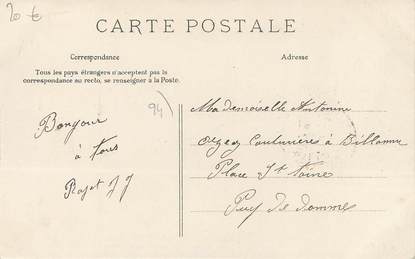 20 €
CARTE POSTALE
Correspondance
Adresse
Tous les pays étrangers n'acceptent pas la
correspondance au recto, se renseigner à la Poste.
94)
Bonjour
à tous
Mademoiselle Antonine
Couturière à Billom
Place St
Puy de Dome